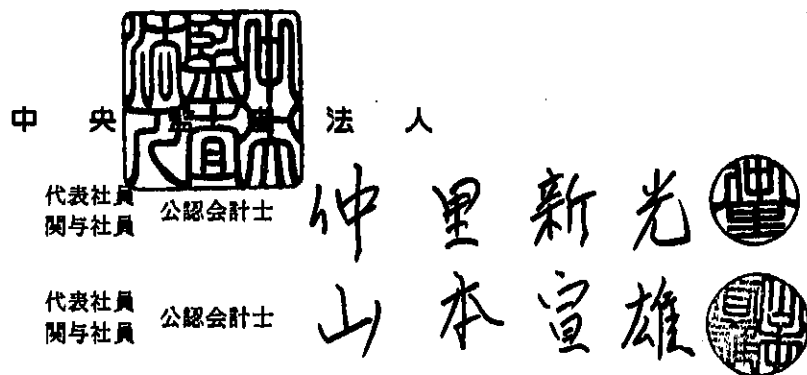 中央監査法人
代表社員
関与社員 公認会計士 仲里新光
代表社員
関与社員 公認会計士 山本宣雄